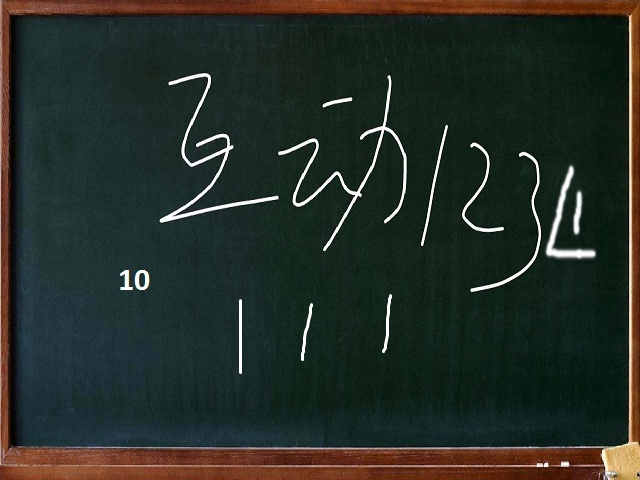 互动1234
10
111